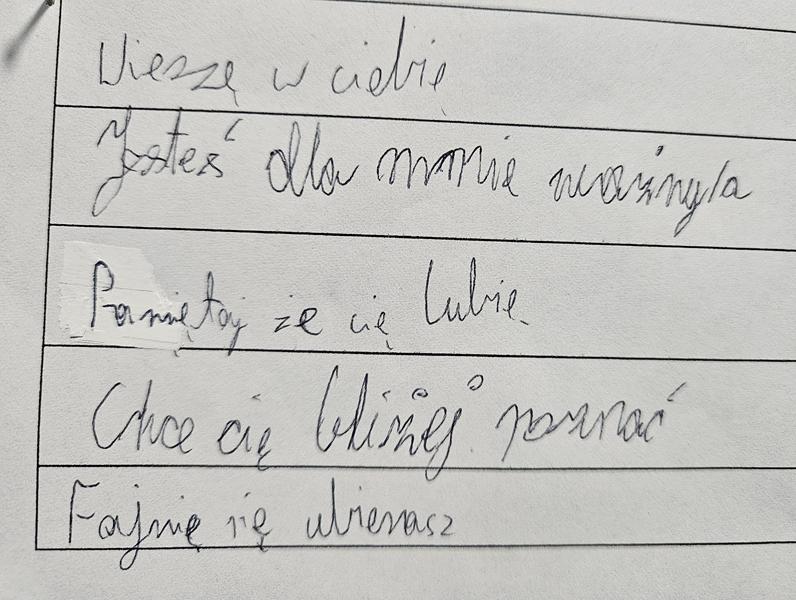 Wieszę w ciebię
Jesteś dla mnie ważnyla
Pamiętaj że cię Lubię
Chce cię bliżej poznać
Fajnię się ubierasz